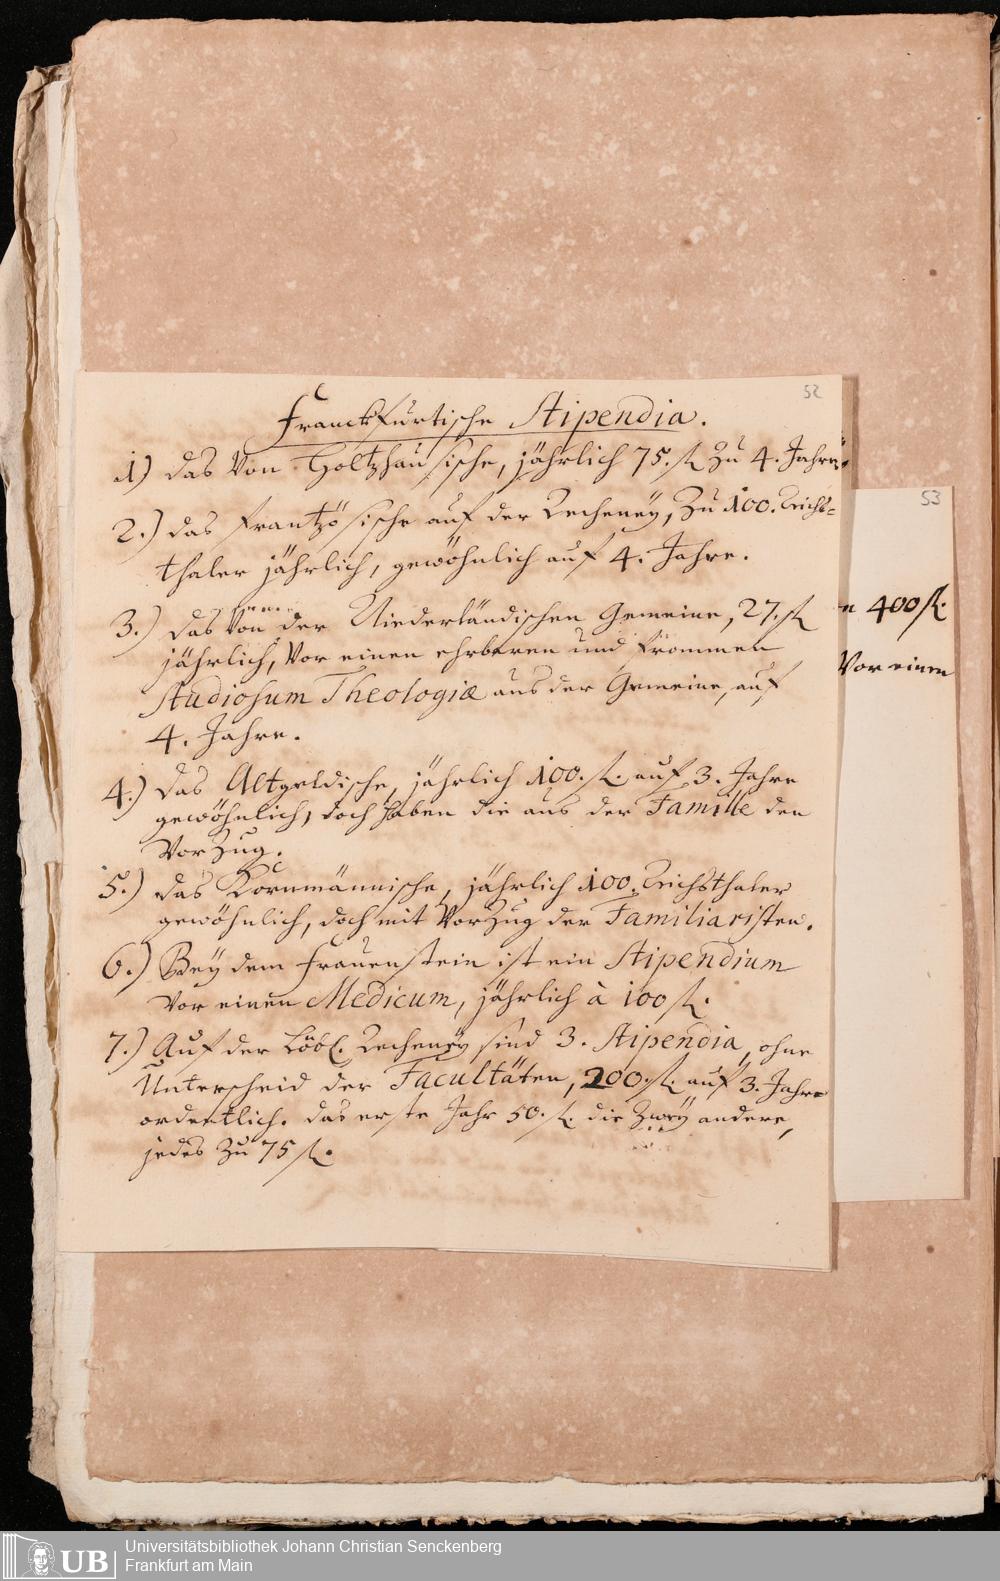 52
Franckfurtische Stipendia.
1) das Von Holtzhausische, jährlich 75. fl. zu 4. Jahren.
2.) das Frantzösische auf der Recheney, zu 100. Reichs=
thaler jährlich, gewöhnlich auf 4. Jahre.
3.) das von der Niederländischen Gemeine, 27. fl.
jährlich, Vor einen ehrbaren und frommen
Studiosum Theologiæ aus der Gemeine, auf
4. Jahre.
4.) das Altgeldische, jährlich 100. fl. auf 3. Jahre
gewöhnlich, doch haben die aus der Famille den
Vorzug.
5.) das Kornmännische, jährlich 100. Reichsthaler
gewöhnlich, doch mit Vorzug der Familiaristen.
6.) Bey dem Frauenstein ist ein Stipendium
Vor einen Medicum, jährlich à 100 fl.
7.) Auf der Löbl. Recheney sind 3. Stipendia, ohne
Unterscheid der Facultäten, 200. fl. auf 3. Jahre
ordentlich. das erste Jahr 50. fl. die zwey andere,
jedes zu 75 fl.
53
n 400 fl.
Vor einen
UB
Universitätsbibliothek Johann Christian Senckenberg
Frankfurt am Main